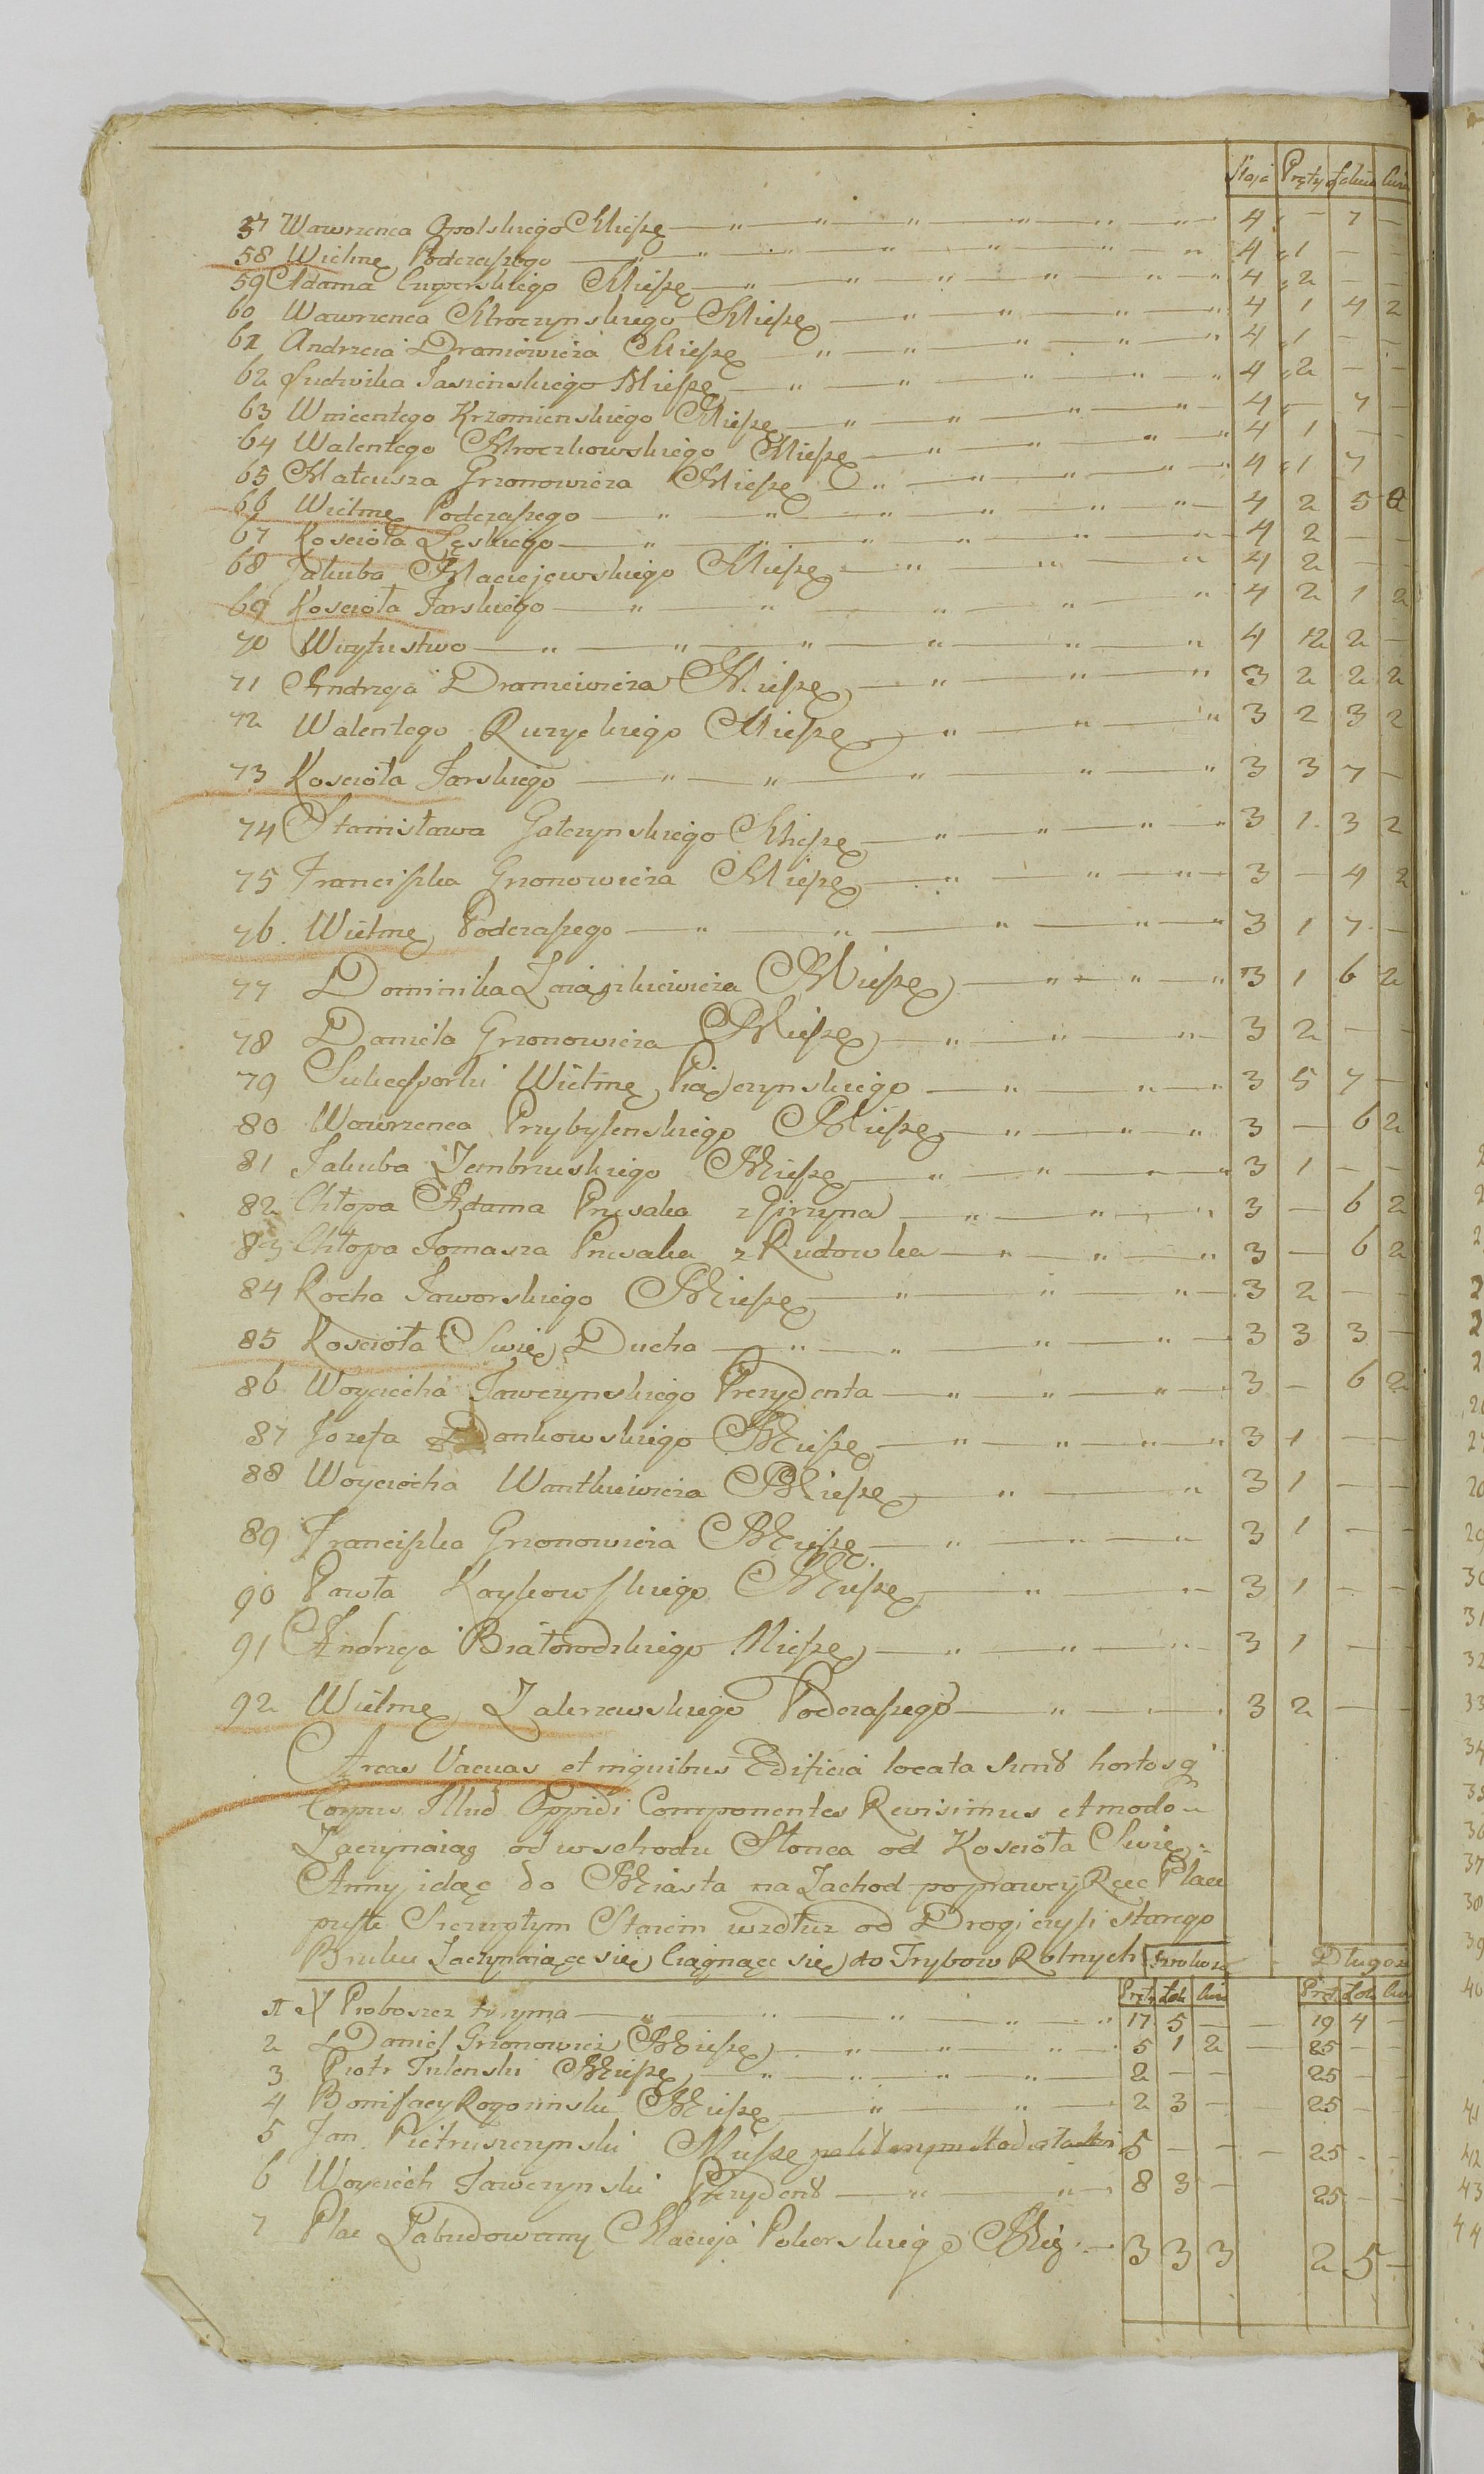 Staja Pręty Łokcie Ćwie
57 Wawrzenca Opolskiego Miesz — 4 — 7 —
58 Wielmę Podczaszego — 4 1 — —
59 Adama Cuperskiego Miesz — 4 2 — —
60 Wawrzenca Mroczynskiego Miesz — 4 1 4 2
61 Andrzeia Draniewicza Miesz — 4 1 — —
62 Ludwika Jasienskiego Miesz — 4 2 — —
63 Wincentego Krzemienskiego Miesz — 4 — 7 —
64 Walentego Mroczkowskiego Miesz — 4 1 — —
65 Mateusza Grzonowicza Miesz — 4 1 7
66 Wielmę Podczaszego — 4 2 5 2
67 Koscioła Łęskiego — 4 2 — —
68 Jakuba Maciejewskiego Miesz — 4 2 — —
69 Koscioła Farskiego — 4 2 1 2
70 Woytostwo — 4 12 2 —
71 Andrzeja Draniewicza Miesz — 3 2 2 2
72 Walentego Rużyckiego Miesz — 3 2 3 2
73 Koscioła Farskiego — 3 3 7 —
74 Stanisława Gałczynskiego Miesz — 3 1 3 2
75 Franciszka Grzonowicza Miesz — 3 — 4 2
76 Wielmę Podczaszego — 3 1 7 —
77 Dominika Miesz — 3 1 6 2
78 Daniela Grzonowicza Miesz — 3 2 — —
79 Sukcessorki Wielmę — 3 5 7 —
80 Wawrzenca Przybyszenskiego Miesz — 3 — 6 2
81 Jakuba Zembrzuskiego Miesz — 3 1 — —
82 Chłopa Adama Prusaka z Girzyna — 3 — 6 2
83 Chłopa Tomasza Prusaka z Rudowka — 3 — 6 2
84 Rocha Jaworskiego Miesz — 3 2 — —
85 Koscioła Swię Ducha — 3 3 3 —
86 Woyciecha Jawczynskiego Prezydenta — 3 — 6 2
87 Jozefa Dankowskiego Miesz — 3 1 — —
88 Woyciecha Wantkiewicza Miesz — 3 1 — —
89 Franciszka Grzonowicza Miesz — 3 1 — —
90 Pawła Kaykowskiego Miesz — 3 1 — —
91 Andrzeja Białobrodzkiego Miesz — 3 1 —
92 Wielmę Zakrzewskiego Podczaszego — 3 2 — —
Areas Vacuas et in quibus Edificia locata sunt hortosq
Corpus Illud Oppidi Componentes Revisimus et modo
Zaczynaiąc od wschodu Słonca od Koscioła Swię
Anny idąc do Miasta na Zachod po prawey Ręce Place
puste Staiem wzdłuż od Drogi czyli starego
Bruku Zaczynaiące się Ciągnące się do Trybow Rolnych Szerokosc Długosc
Pręty Łok Ćwie Pręt Łok Ćwi
1 Proboszcz trzyma — 17 5 — — 19 4 —
2 Daniel Grzonowicz Miesz — 5 1 2 — 25 — —
3 Piotr Tulenski Miesz — 2 — — 25 — —
4 Bonifacy Rogozinski Miesz — 2 3 — — 25 — —
5 Jan Pietruszczynski Miesz na ktorym 5 — — — 25 — —
6 Woyciech Jawczynski Prezydent — 8 3 — 25 — —
7 Plac Zabudowany Macieja Pokorskiego Mię — 3 3 3 2 5 —